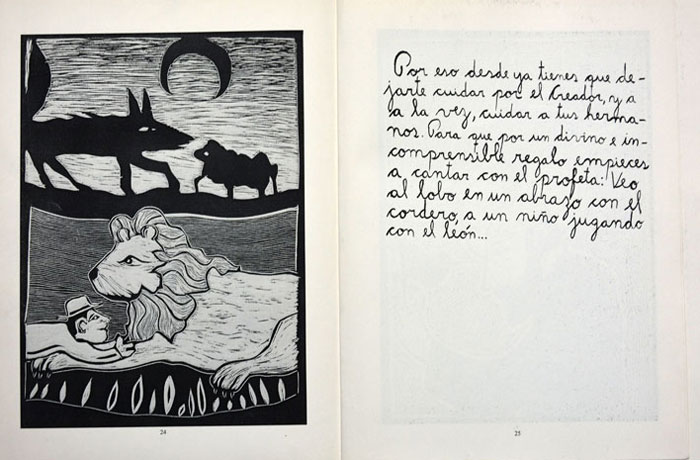 Por eso desde ya tienes que de-
jarte cuidar por el Creador, y a
a la vez, cuidar a tus herma-
nos. Para que por un divino e in-
comprensible regalo empieces
a cantar con el profeta: Veo
al lobo en un abrazo con el
cordero, a un niño jugando
con el león...
24
25